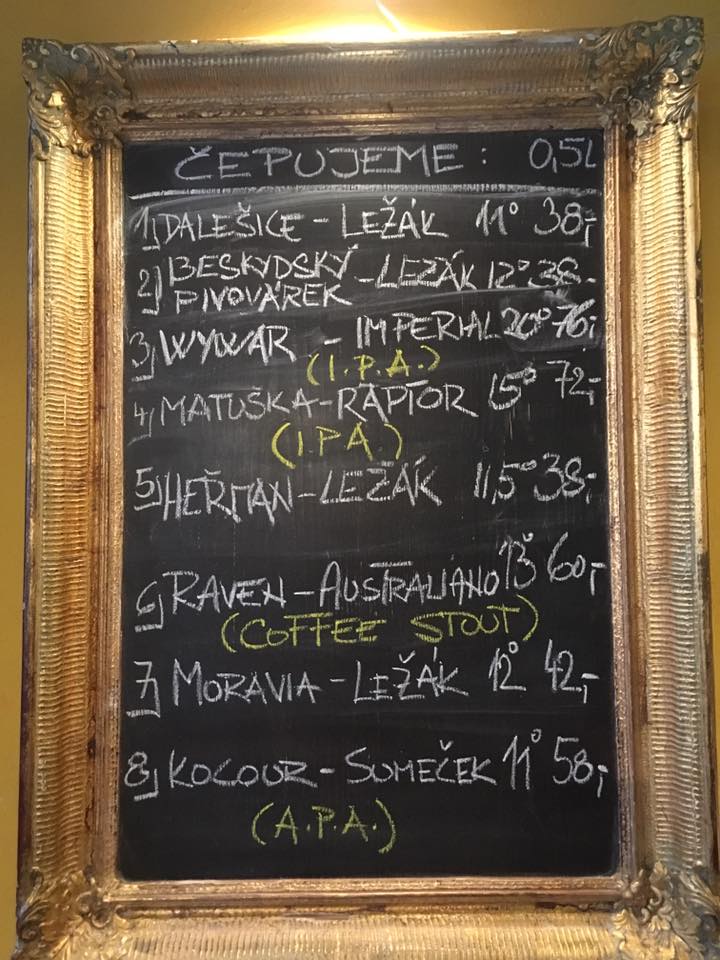 ČEPUJEME: 0,5l
1) DALEŠICE - LEŽÁK 11° 38,-
2) BESKYDSKÝ PIVOVÁREK - LEŽÁK 12° 38,-
3) WYWAR - IMPERIAL 20° 76,-
(I.P.A.)
4) MATUŠKA - RAPTOR 15° 72,-
(I.P.A.)
5) HEŘMAN - LEŽÁK 11,5° 38,-
6) RAVEN - AUSTRALIANO 13° 60,-
(COFFEE STOUT)
7) MORAVIA - LEŽÁK 12° 42,-
8) KOCOUR - SUMEČEK 11° 58,-
(A.P.A.)